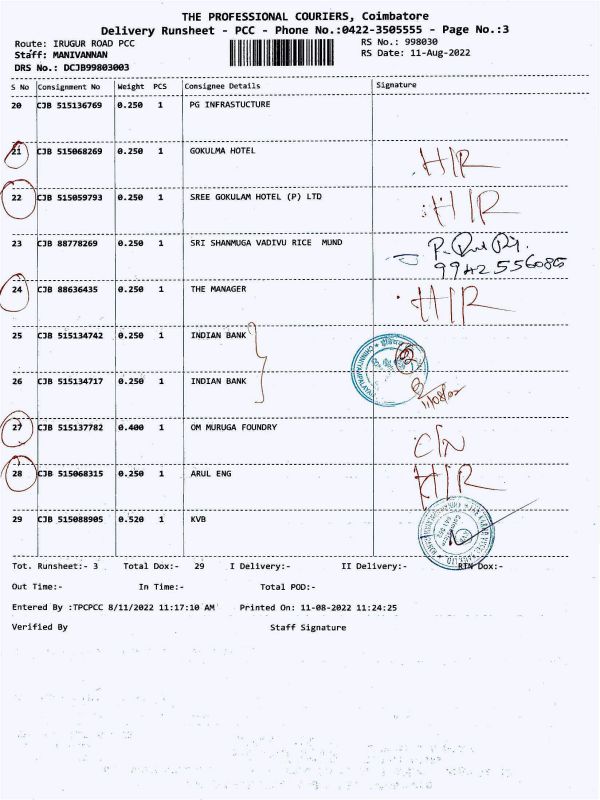 THE PROFESSIONAL COURIERS, Coimbatore
Delivery Runsheet - PCC - Phone No.:0422-3505555 - Page No.:3
Route: IRUGUR ROAD PCC RS No.: 998030
Staff: MANIVANNAN RS Date: 11-Aug-2022
DRS No.: DCJB99803003
S No Consignment No Weight PCS Consignee Details Signature
20 CJB 515136769 0.250 1 PG INFRASTUCTURE
21 CJB 515068269 0.250 1 GOKULMA HOTEL H/R
22 CJB 515059793 0.250 1 SREE GOKULAM HOTEL (P) LTD H/R
23 CJB 88778269 0.250 1 SRI SHANMUGA VADIVU RICE MUND
9942556085
24 CJB 88636435 0.250 1 THE MANAGER H/R
25 CJB 515134742 0.250 1 INDIAN BANK
26 CJB 515134717 0.250 1 INDIAN BANK
27 CJB 515137782 0.400 1 OM MURUGA FOUNDRY C/N
28 CJB 515068315 0.250 1 ARUL ENG H/R
29 CJB 515088905 0.520 1 KVB
Tot. Runsheet:- 3 Total Dox:- 29 I Delivery:- II Delivery:- RTN Dox:-
Out Time:- In Time:- Total POD:-
Entered By :TPCPCC 8/11/2022 11:17:10 AM Printed On: 11-08-2022 11:24:25
Verified By Staff Signature